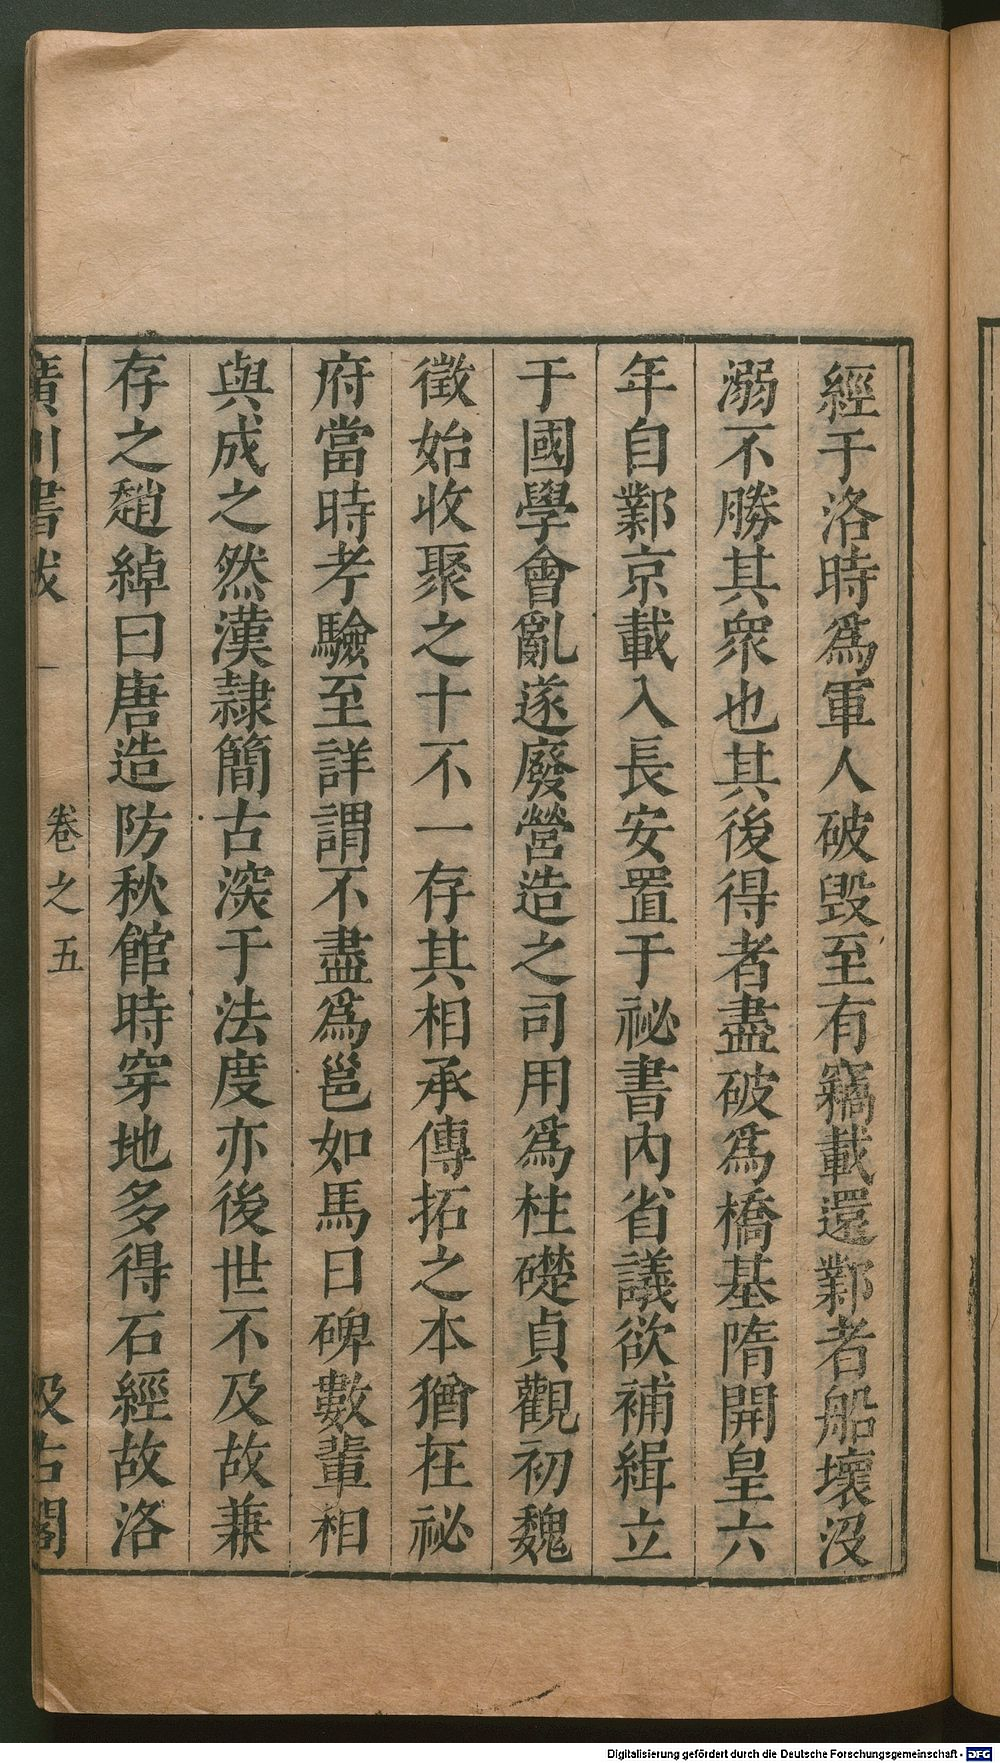 經于洛時爲軍人破毀至有竊載還鄴者船壞沒
溺不勝其衆也其後得者盡破爲橋基隋開皇六
年自鄴京載入長安置于祕書內省議欲補緝立
于國學會亂遂廢營造之司用爲柱礎貞觀初魏
徵始收聚之十不一存其相承傳拓之本猶在祕
府當時孝驗至詳謂不盡爲邕如馬日磾數輩相
與成之然漢隷簡古深于法度亦後世不及故兼
存之趙綽曰唐造防秋館時穿地多得石經故洛
廣川書跋 卷之五 汲古閣
Digitalisierung gefördert durch die Deutsche Forschungsgemeinschaft - DFG